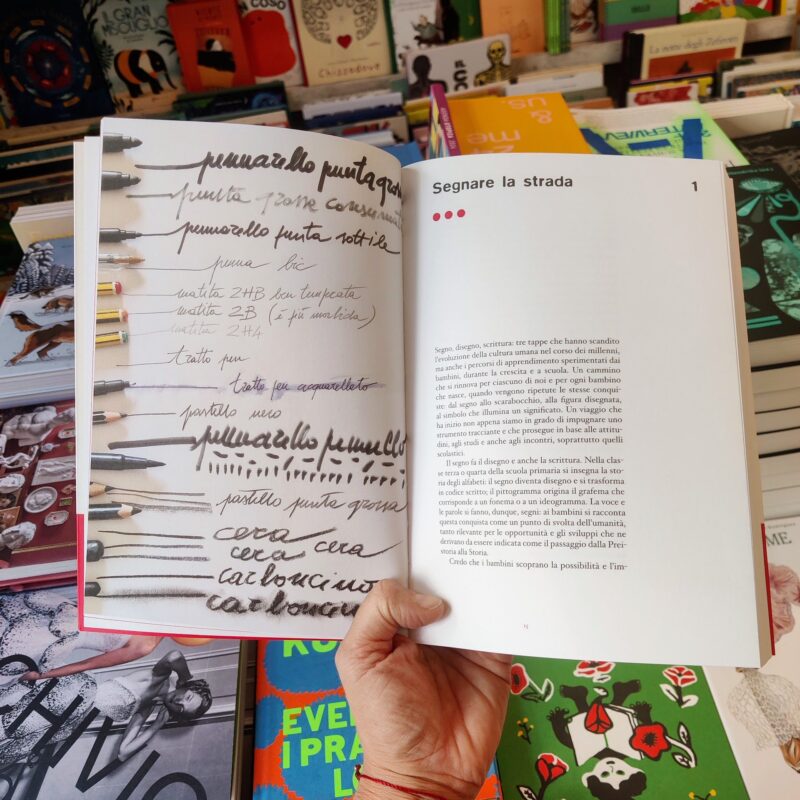 IL GRAN
Chiazzadove
IL CO
La notte degli Zefirotti
& US
me
pennarello punta gros
punta grossa consumat
pennarello punta sottile
penna bic
matita 2HB ben temperata
matita 2B (è più morbida)
matita 2H4
tratto pen
tratto pen acquarellato
pastello nero
pennarello pennello
pastello punta grossa
cera
cera cera
carboncino
carboncino
Segnare la strada 1
Segno, disegno, scrittura: tre tappe che hanno scandito
l'evoluzione della cultura umana nel corso dei millenni,
ma anche i percorsi di apprendimento sperimentati dai
bambini, durante la crescita e a scuola. Un cammino
che si rinnova per ciascuno di noi e per ogni bambino
che nasce, quando vengono ripetute le stesse conqui-
ste: dal segno allo scarabocchio, alla figura disegnata,
al simbolo che illumina un significato. Un viaggio che
ha inizio non appena siamo in grado di impugnare uno
strumento tracciante e che prosegue in base alle attitu-
dini, agli studi e anche agli incontri, soprattutto quelli
scolastici.
Il segno fa il disegno e anche la scrittura. Nella clas-
se terza o quarta della scuola primaria si insegna la sto-
ria degli alfabeti: il segno diventa disegno e si trasforma
in codice scritto; il pittogramma origina il grafema che
corrisponde a un fonema o a un ideogramma. La voce e
le parole si fanno, dunque, segni: ai bambini si racconta
questa conquista come un punto di svolta dell'umanità,
tanto rilevante per le opportunità e gli sviluppi che ne
derivano da essere indicata come il passaggio dalla Prei-
storia alla Storia.
Credo che i bambini scoprano la possibilità e l'im-
CHIVIO
EVE
I PRA
LO